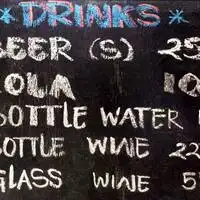 * DRINKS *
BEER (S) 25
COLA 10
BOTTLE WATER
BOTTLE WINE 22
GLASS WINE 5